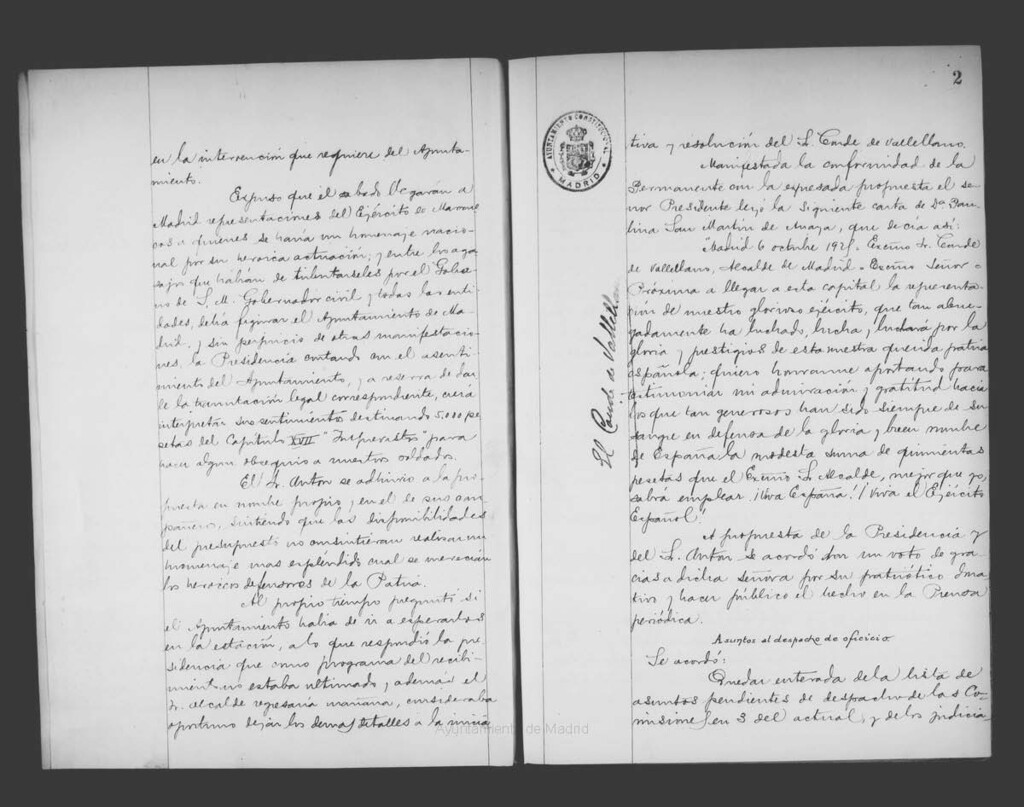 en la intervención que requiere del Ayunta-
miento.
Expuso que el sabado llegarán a
Madrid representaciones del Ejército de Marrue
cos a quienes se haría un homenaje nacio-
nal por su heroica actuación; y entre los aga
sajos que habían de tributarseles por el Gobier-
no de S. M. Gobernador civil y todas las enti-
dades, debía figurar el Ayuntamiento de Ma-
drid, y sin perjuicio de otras manifestacio-
nes, la Presidencia contando con el asenti-
miento del Ayuntamiento, y a reserva de dar
le la tramitación legal correspondiente, creía
interpretar sus sentimientos destinando 5.000 pe-
setas del Capítulo XVII "Imprevistos" para
hacer algun obsequio a nuestros soldados.
El Sr. Antón se adhirio a la pro-
puesta en nombre propio y en el de sus com-
pañeros, sintiendo que las disponibilidades
del presupuesto no consintieran realizar un
homenaje mas espléndido cual se merecían
los heroicos defensores de la Patria.
Al propio tiempo preguntó si
el Ayuntamiento habia de ir a esperarlos
en la estación, a lo que respondió la pre-
sidencia que como programa del recibi-
miento no estaba ultimado y ademas el
Sr. Alcalde regresaría mañana, consideraba
oportuno dejar los demas detalles a la inicia
Ayuntamiento de Madrid
2
AYUNTAMIENTO CONSTITUCIONAL
MADRID
El Conde de Vallellano
tiva y resolución del Sr. Conde de Vallellano.
Manifestada la conformidad de la
Permanente con la expresada propuesta el se-
ñor Presidente leyó la siguiente carta de Dª Pau-
lina San Martin de Anaya, que decía así:
"Madrid 6 octubre 192 . Excmo Sr. Conde
de Vallellano, Alcalde de Madrid = Excmo Señor =
Próxima a llegar a esta capital la representa-
ción de nuestro glorioso ejército, que tan abne-
gadamente ha luchado, lucha y luchará por la
gloria y prestigios de esta nuestra querida patria
española; quiero honrarme aportando para
testimoniar mi admiración y gratitud hacia
los que tan generosos han sido siempre de su
sangre en defensa de la gloria y buen nombre
de España la modesta suma de quinientas
pesetas que el Excmo Sr. Alcalde, mejor que yo,
sabrá emplear. ¡Viva España! ¡Viva el Ejército
Español!
A propuesta de la Presidencia y
del Sr. Antón se acordó dar un voto de gra
cias a dicha señora por su patriótico dona
tivo y hacer público el hecho en la Prensa
periódica.
Asuntos al despacho de oficio
Se acordó:
Quedar enterada de la lista de
asuntos pendientes de despacho de las Co-
misiones en 3 del actual y de los judicia-